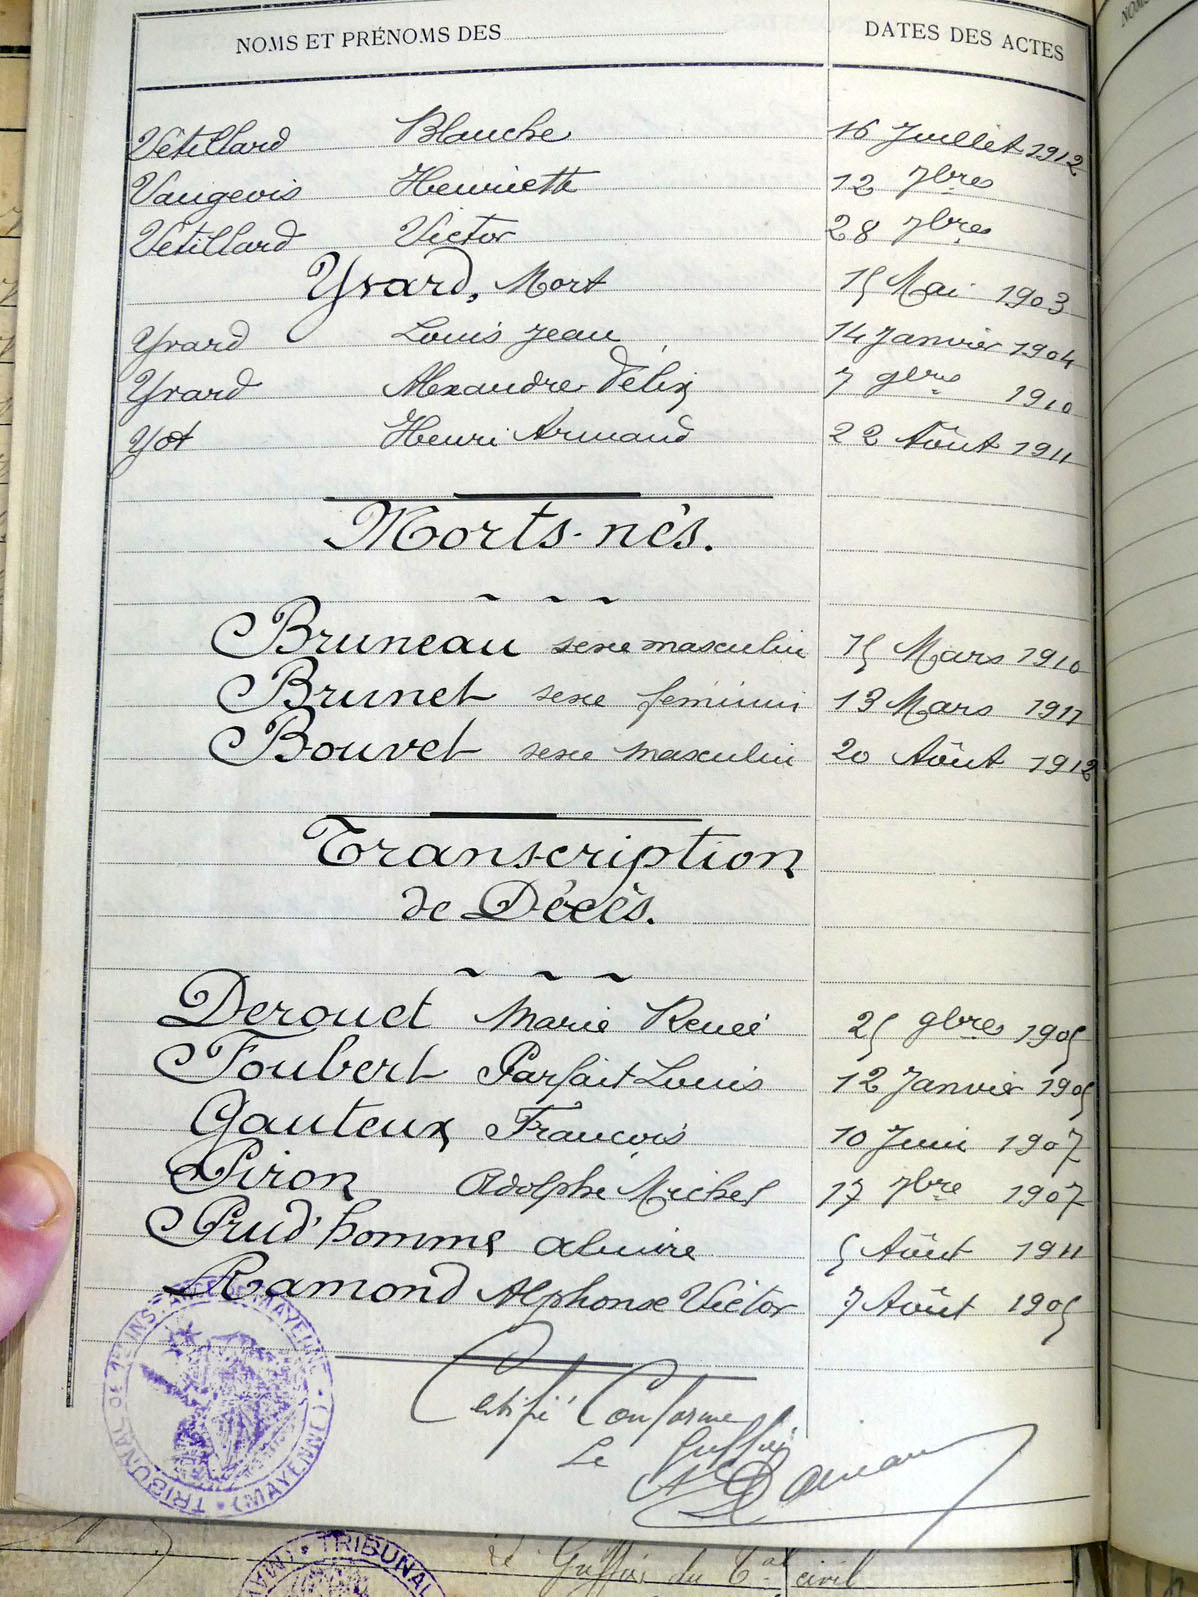 NOMS ET PRÉNOMS DES DATES DES ACTES
Vétillard Blanche 16 Juillet 1912
Vaugeois Henriette 12 7bres
Vétillard Victor 28 7bres
Yvard, Mort 15 Mai 1903
Yvard Louis Jean 14 Janvier 1904
Yvard Alexandre Félix 7 9bres 1910
Yot Henri Armand 22 Août 1911
Morts-nés.
Bruneau sexe masculin 15 Mars 1910
Brunet sexe féminin 13 Mars 1911
Bouvet sexe masculin 20 Août 1912
Transcription
de Décès.
Derouet Marie René 25 9bres 1905
Foubert Parfait Louis 12 Janvier 1905
Gauteux François 10 Juin 1907
Piron Adolphe Michel 17 7bre 1907
Prud'homme Almire 5 Août 1911
Ramond Alphonse Victor 7 Août 1905
Certifié Conforme
Le Greffier
TRIBUNAL DE 1RE INSTANCE DE MAYENNE (MAYENNE)
TRIBUNAL
Le Greffier du Tal civil